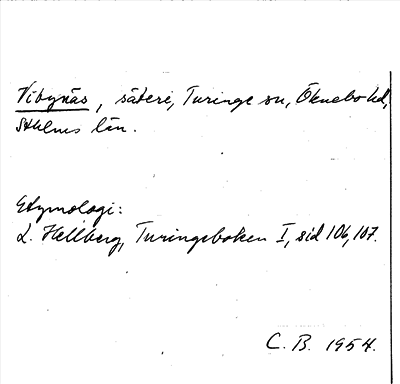 Vibynäs, säteri, Turinge sn, Öknebo hd,
Sthlms län.
Etymologi:
L. Hellberg, Turingeboken I, sid 106, 107.
C. B. 1954.